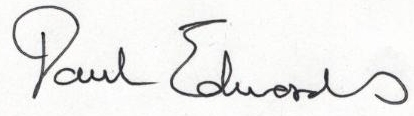 Paul Edwards